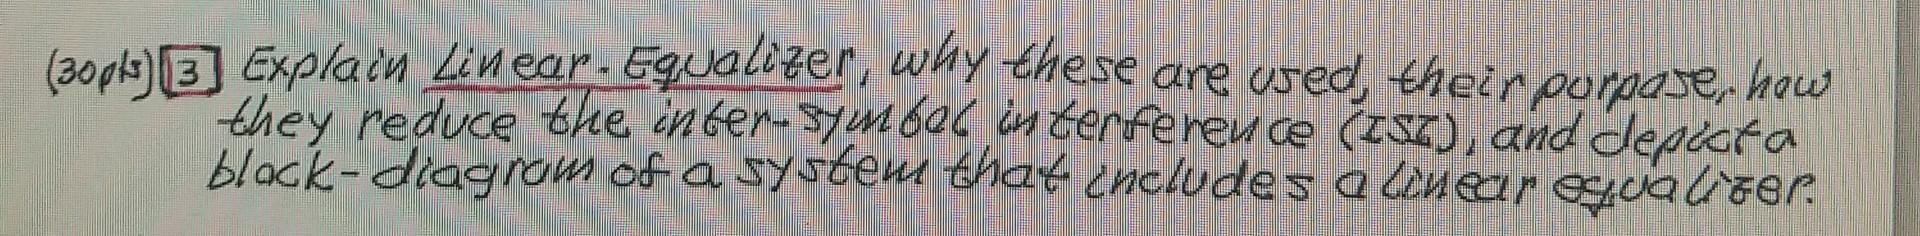 (30pts) 3 Explain Linear-Equalizer, why these are used, their porpose, how
they reduce the inter-symbol interference (ISI), and depict a
block-diagram of a system that includes a linear equalizer.